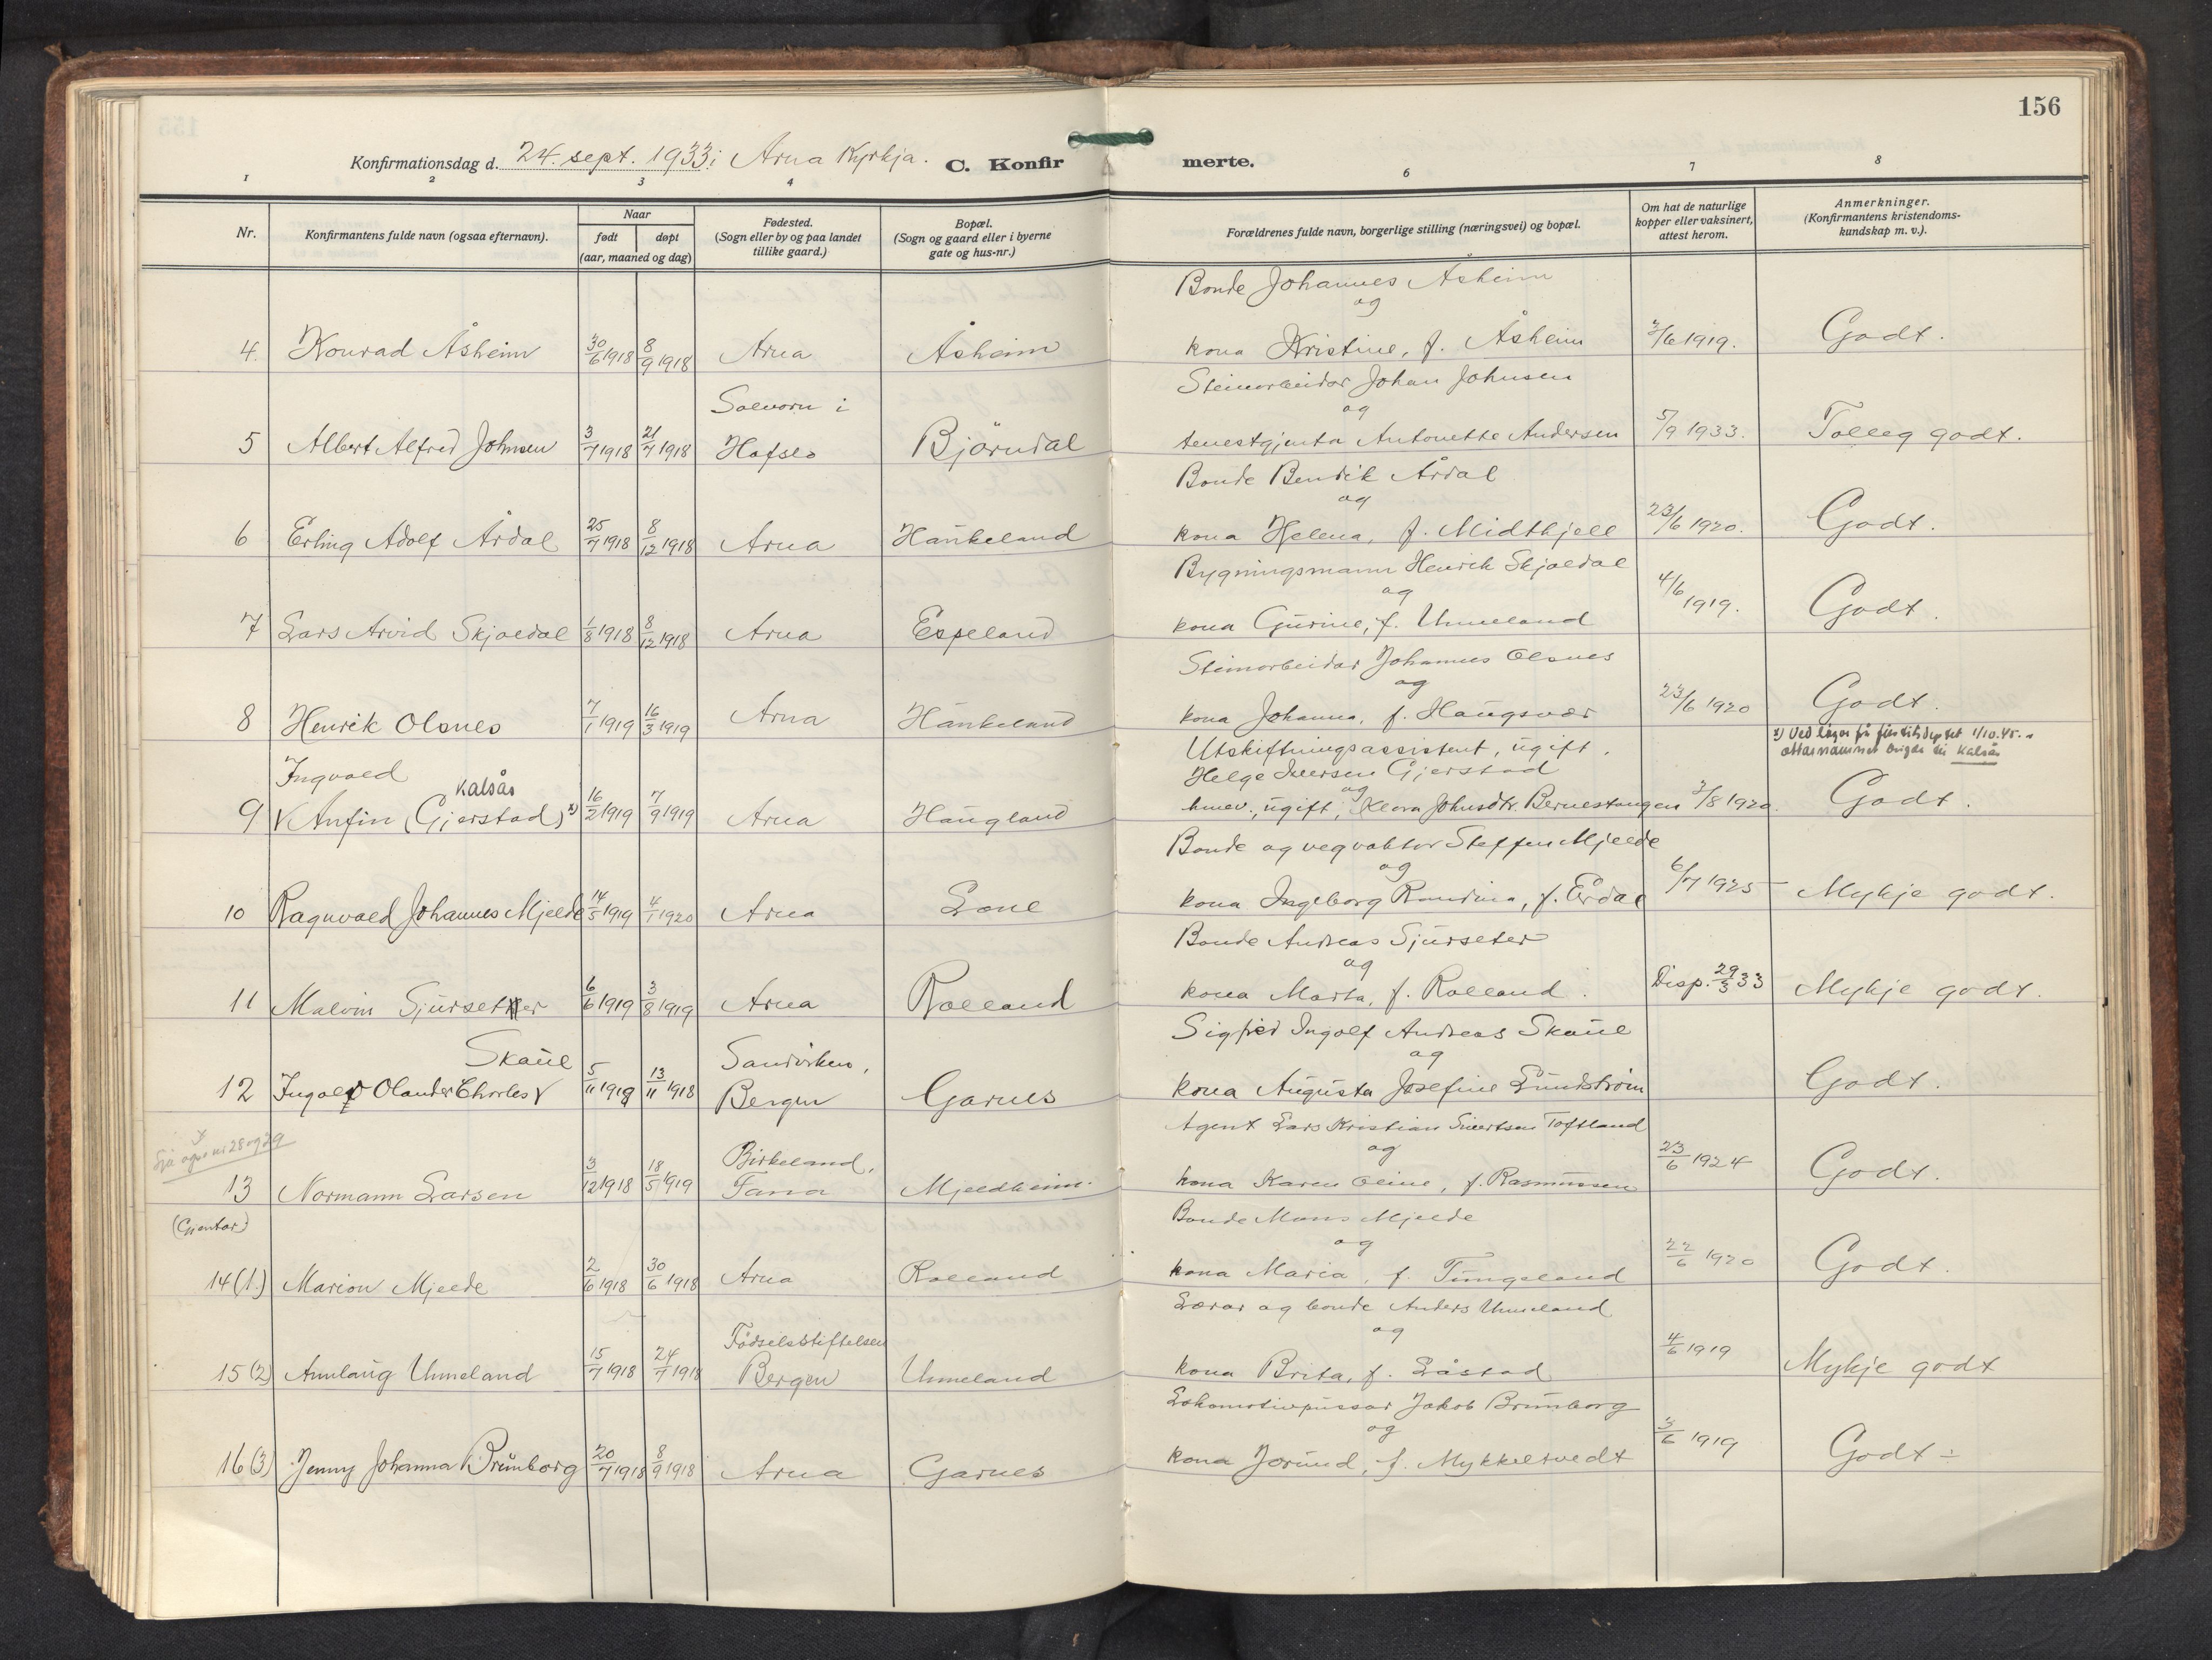 156
Konfirmationsdag d. 24. sept. 1933 i Arna Kyrkja. C. Konfir merte.
1 2 3 4 6 7 8
Nr.
Konfirmantens fulde navn (ogsaa efternavn).
Naar
født døpt
(aar, maaned og dag)
Fødested.
(Sogn eller by og paa landet
tillike gaard.)
Bopæl.
(Sogn og gaard eller i byerne
gate og hus-nr.)
Forældrenes fulde navn, borgerlige stilling (næringsvei) og bopæl.
Om hat de naturlige
kopper eller vaksinert,
attest herom.
Anmerkninger.
(Konfirmantens kristendoms-
kundskap m. v.).
Bonde Johannes Åsheim
og
4. Konrad Åsheim 30/6 1918 8/9 1918 Arna Åsheim kona Kristine, f. Åsheim 3/6 1919. Godt.
Steinarbeidar Johan Johnsen
Solvorn i og
5 Albert Alfred Johnsen 3/7 1918 21/7 1918 Hafslo Björndal tenestgjenta Antonette Andersen 5/9 1933. Tolleg godt.
Bonde Bendik Årdal
og
6 Erling Adolf Årdal 25/7 1918 8/12 1918 Arna Haukeland kona Helena, f. Midtkjell 23/6 1920. Godt.
Bygningsmann Henrik Skjoldal
og
7 Lars Arvid Skjoldal 1/8 1918 8/12 1918 Arna Espeland kona Gurine, f. Unneland 4/6 1919. Godt.
Steinarbeidar Johannes Olsnes
og
8 Henrik Olsnes 7/1 1919 16/3 1919 Arna Haukeland kona Johanna, f. Haugsvær 23/6 1920 Godt.
Utskiftningsassistent, ugift.
x) Ved løyve frå 1/10.45.
Ingvald Kalsås Helge Iversen Gjerstad
og
9 Anfin (Gjerstad) x) 16/2 1919 7/9 1919 Arna Haugland ugift, Klara Johnsdtr. Bernestangen 3/8 1920. Godt.
Bonde og vegvaktar Steffen Mjelde
og
10 Ragnvald Johannes Mjelde 14/5 1919 4/1 1920 Arna Lone kona Ingeborg Randina, f. Erdal 6/7 1925 Mykje godt.
Bonde Andreas Sjurseter
og
11 Malvin Sjurseter 6/6 1919 3/8 1919 Arna Rolland kona Marta, f. Rolland. Disp. 29/3 33 Mykje godt.
Sigfred Ingolf Andreas Skaue
Skaue Sandviken, og
12 Ingolf Olander Charles 5/11 1918 13/11 1918 Bergen Garnes kona Augusta Josefine Lundström Godt.
Sjå også nr 28 og 29
Agent Lars Kristian Sivertsen Toftland
Birkeland, og
13 Normann Larsen 3/12 1918 18/5 1919 Fana Mjeldheim. kona Karen Oline, f. Rasmussen 23/6 1924 Godt.
(Gjentor) Bonde Mons Mjelde
og
14 (1.) Marion Mjelde 2/6 1918 30/6 1918 Arna Rolland kona Maria, f. Tungeland 22/6 1920 Godt.
Lærar og bonde Anders Unneland
Fødselsstiftelsen og
15 (2) Annlaug Unneland 15/7 1918 24/7 1918 Bergen Unneland kona Brita, f. Låstad 4/6 1919 Mykje godt
Lokomotivpussar Jakob Brunborg
og
16 (3) Jenny Johanna Brunborg 20/7 1918 8/9 1918 Arna Garnes kona Jorund, f. Mykkeltvedt 3/6 1919 Godt ÷